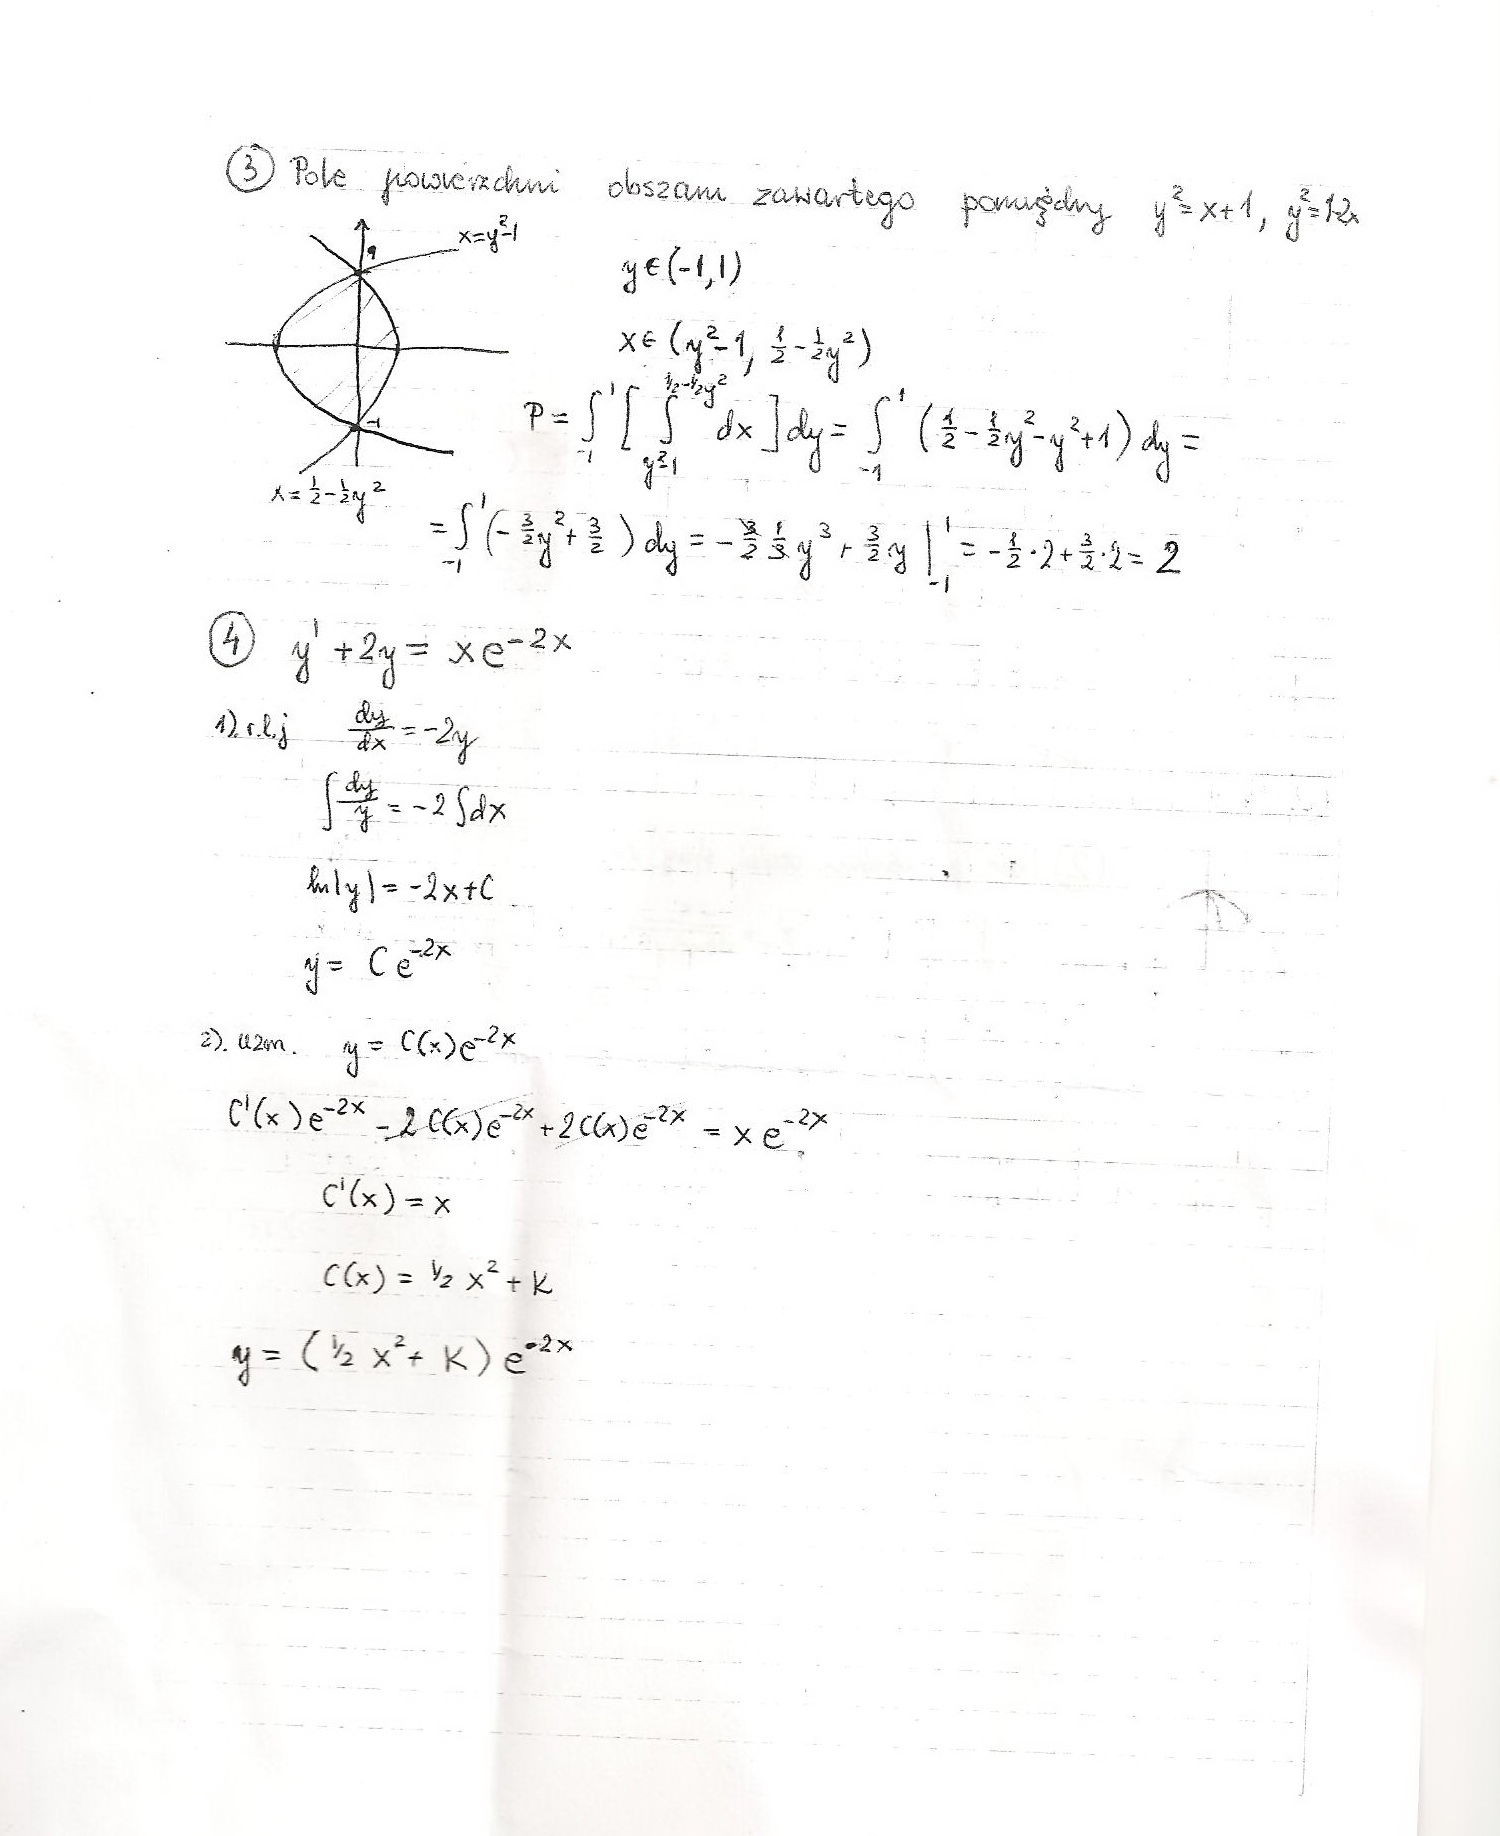 ③ Pole powierzchni obszaru zawartego pomiędzy y²=x+1, y²=1-2x
x=y²-1
1
-1
x=½-½y²
y∈(-1,1)
x∈(y²-1, ½-½y²)
P=∫₋₁¹[∫_{y²-1}^{1/2-1/2y²} dx]dy=∫₋₁¹(½-½y²-y²+1)dy=
=∫₋₁¹(-3/2y²+3/2)dy=-3/2 1/3 y³+3/2y|₋₁¹=-½·2+3/2·2=2
④ y'+2y=xe^{-2x}
1). r.l.j dy/dx=-2y
∫dy/y=-2∫dx
ln|y|=-2x+C
y=Ce^{-2x}
2). uzm. y=C(x)e^{-2x}
C'(x)e^{-2x}-2C(x)e^{-2x}+2C(x)e^{-2x}=xe^{-2x}
C'(x)=x
C(x)=1/2x²+K
y=(1/2x²+K)e^{-2x}